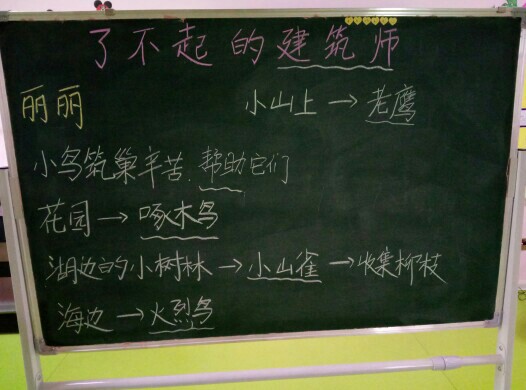 了不起的建筑师
丽丽
小山上→老鹰
小鸟筑巢辛苦.帮助它们
花园→啄木鸟
湖边的小树林→小山雀→收集柳枝
海边→火烈鸟